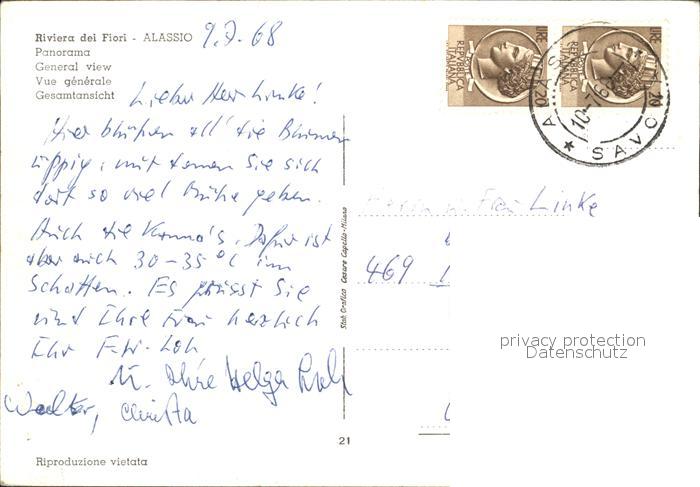 Riviera dei Fiori - ALASSIO 9.7.68
Panorama
General view
Vue générale
Gesamtansicht
Lieber Herr Linke!
Hier blühen all' die Blumen
üppig, mit denen Sie sich
dort so viel Mühe geben.
Auch die Kanna's. Dafür ist
aber auch 30-35°C im
Schatten. Es grüsst Sie
und Ihre Frau herzlich
Ihr
u. Ihre Helga
Walter, Christa
Riproduzione vietata
21
Stab. Grafico Cesare Capello - Milano
LIRE 20
REPVBBLICA ITALIANA
LIRE 20
REPVBBLICA ITALIANA
SAVO
Frau Linke
469
privacy protection
Datenschutz